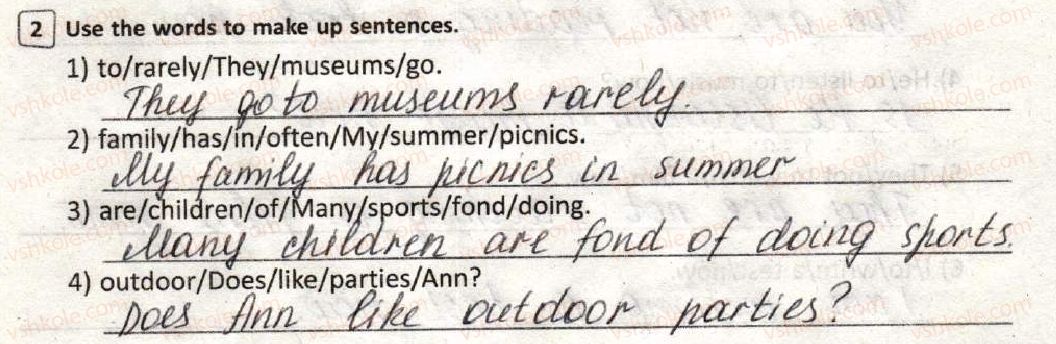 2 Use the words to make up sentences.
1) to/rarely/They/museums/go.
They go to museums rarely.
2) family/has/in/often/My/summer/picnics.
My family has picnics in summer
3) are/children/of/Many/sports/fond/doing.
Many children are fond of doing sports.
4) outdoor/Does/like/parties/Ann?
Does Ann like outdoor parties?